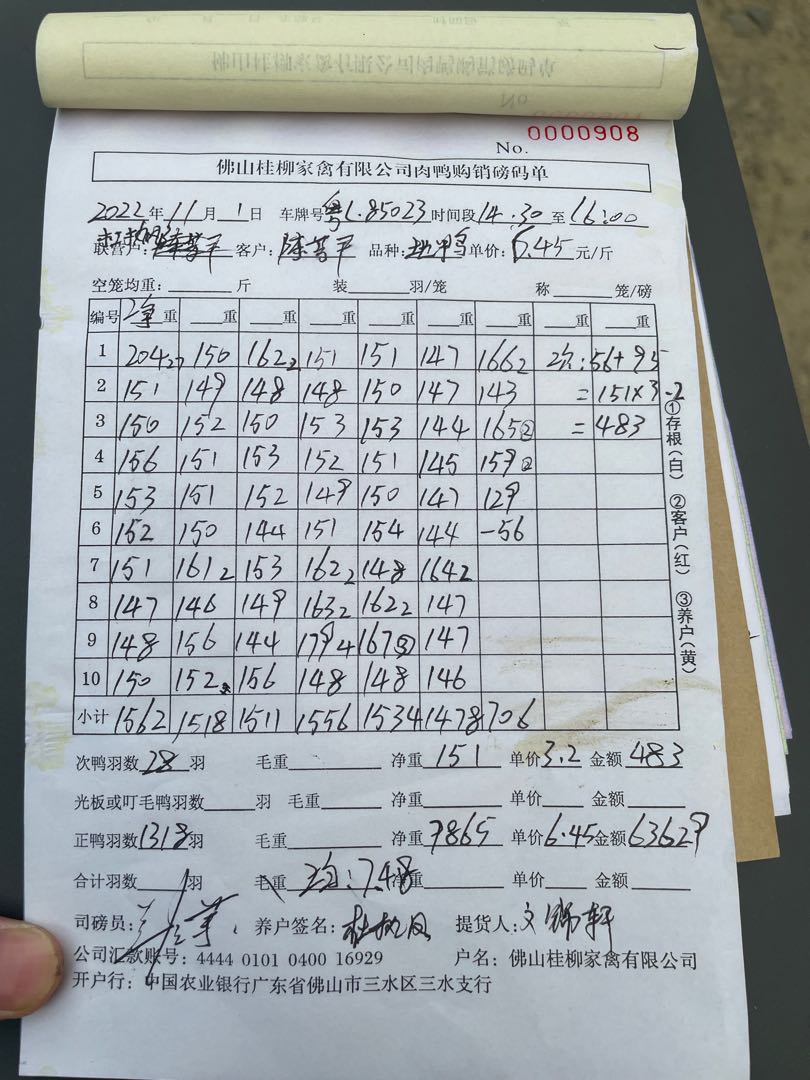 No. 0000908
佛山桂柳家禽有限公司肉鸭购销磅码单
2022年11月1日 车牌号粤L.85023时间段14.30至16:00
联营户: 客户: 品种: 单价:6.45元/斤
空笼均重:______斤 装______羽/笼 称______笼/磅
编号 重 重 重 重 重 重 重 重 重
1 204 27 150 162 2 151 151 147 166 2 次:56+95
2 151 149 148 148 150 147 143 =151×3.2
3 150 152 150 153 153 144 165② =483
4 156 151 153 152 151 145 159②
5 153 151 152 149 150 147 129
6 152 150 144 151 154 144 -56
7 151 161 2 153 162 2 148 164 2
8 147 146 149 163 2 162 2 147
9 148 156 144 179 4 167③ 147
10 150 152 156 148 148 146
小计 1562 1518 1511 1556 1534 1478 706
①存根(白) ②客户(红) ③养户(黄)
次鸭羽数28羽 毛重______ 净重151 单价3.2 金额483
光板或叮毛鸭羽数______羽 毛重______ 净重______ 单价____ 金额____
正鸭羽数1318羽 毛重______ 净重9865 单价6.45金额63629
合计羽数______羽 毛重 均:7.48 净重______ 单价____ 金额____
司磅员: 养户签名: 提货人:文锦轩
公司汇款账号:4444 0101 0400 16929 户名:佛山桂柳家禽有限公司
开户行:中国农业银行广东省佛山市三水区三水支行